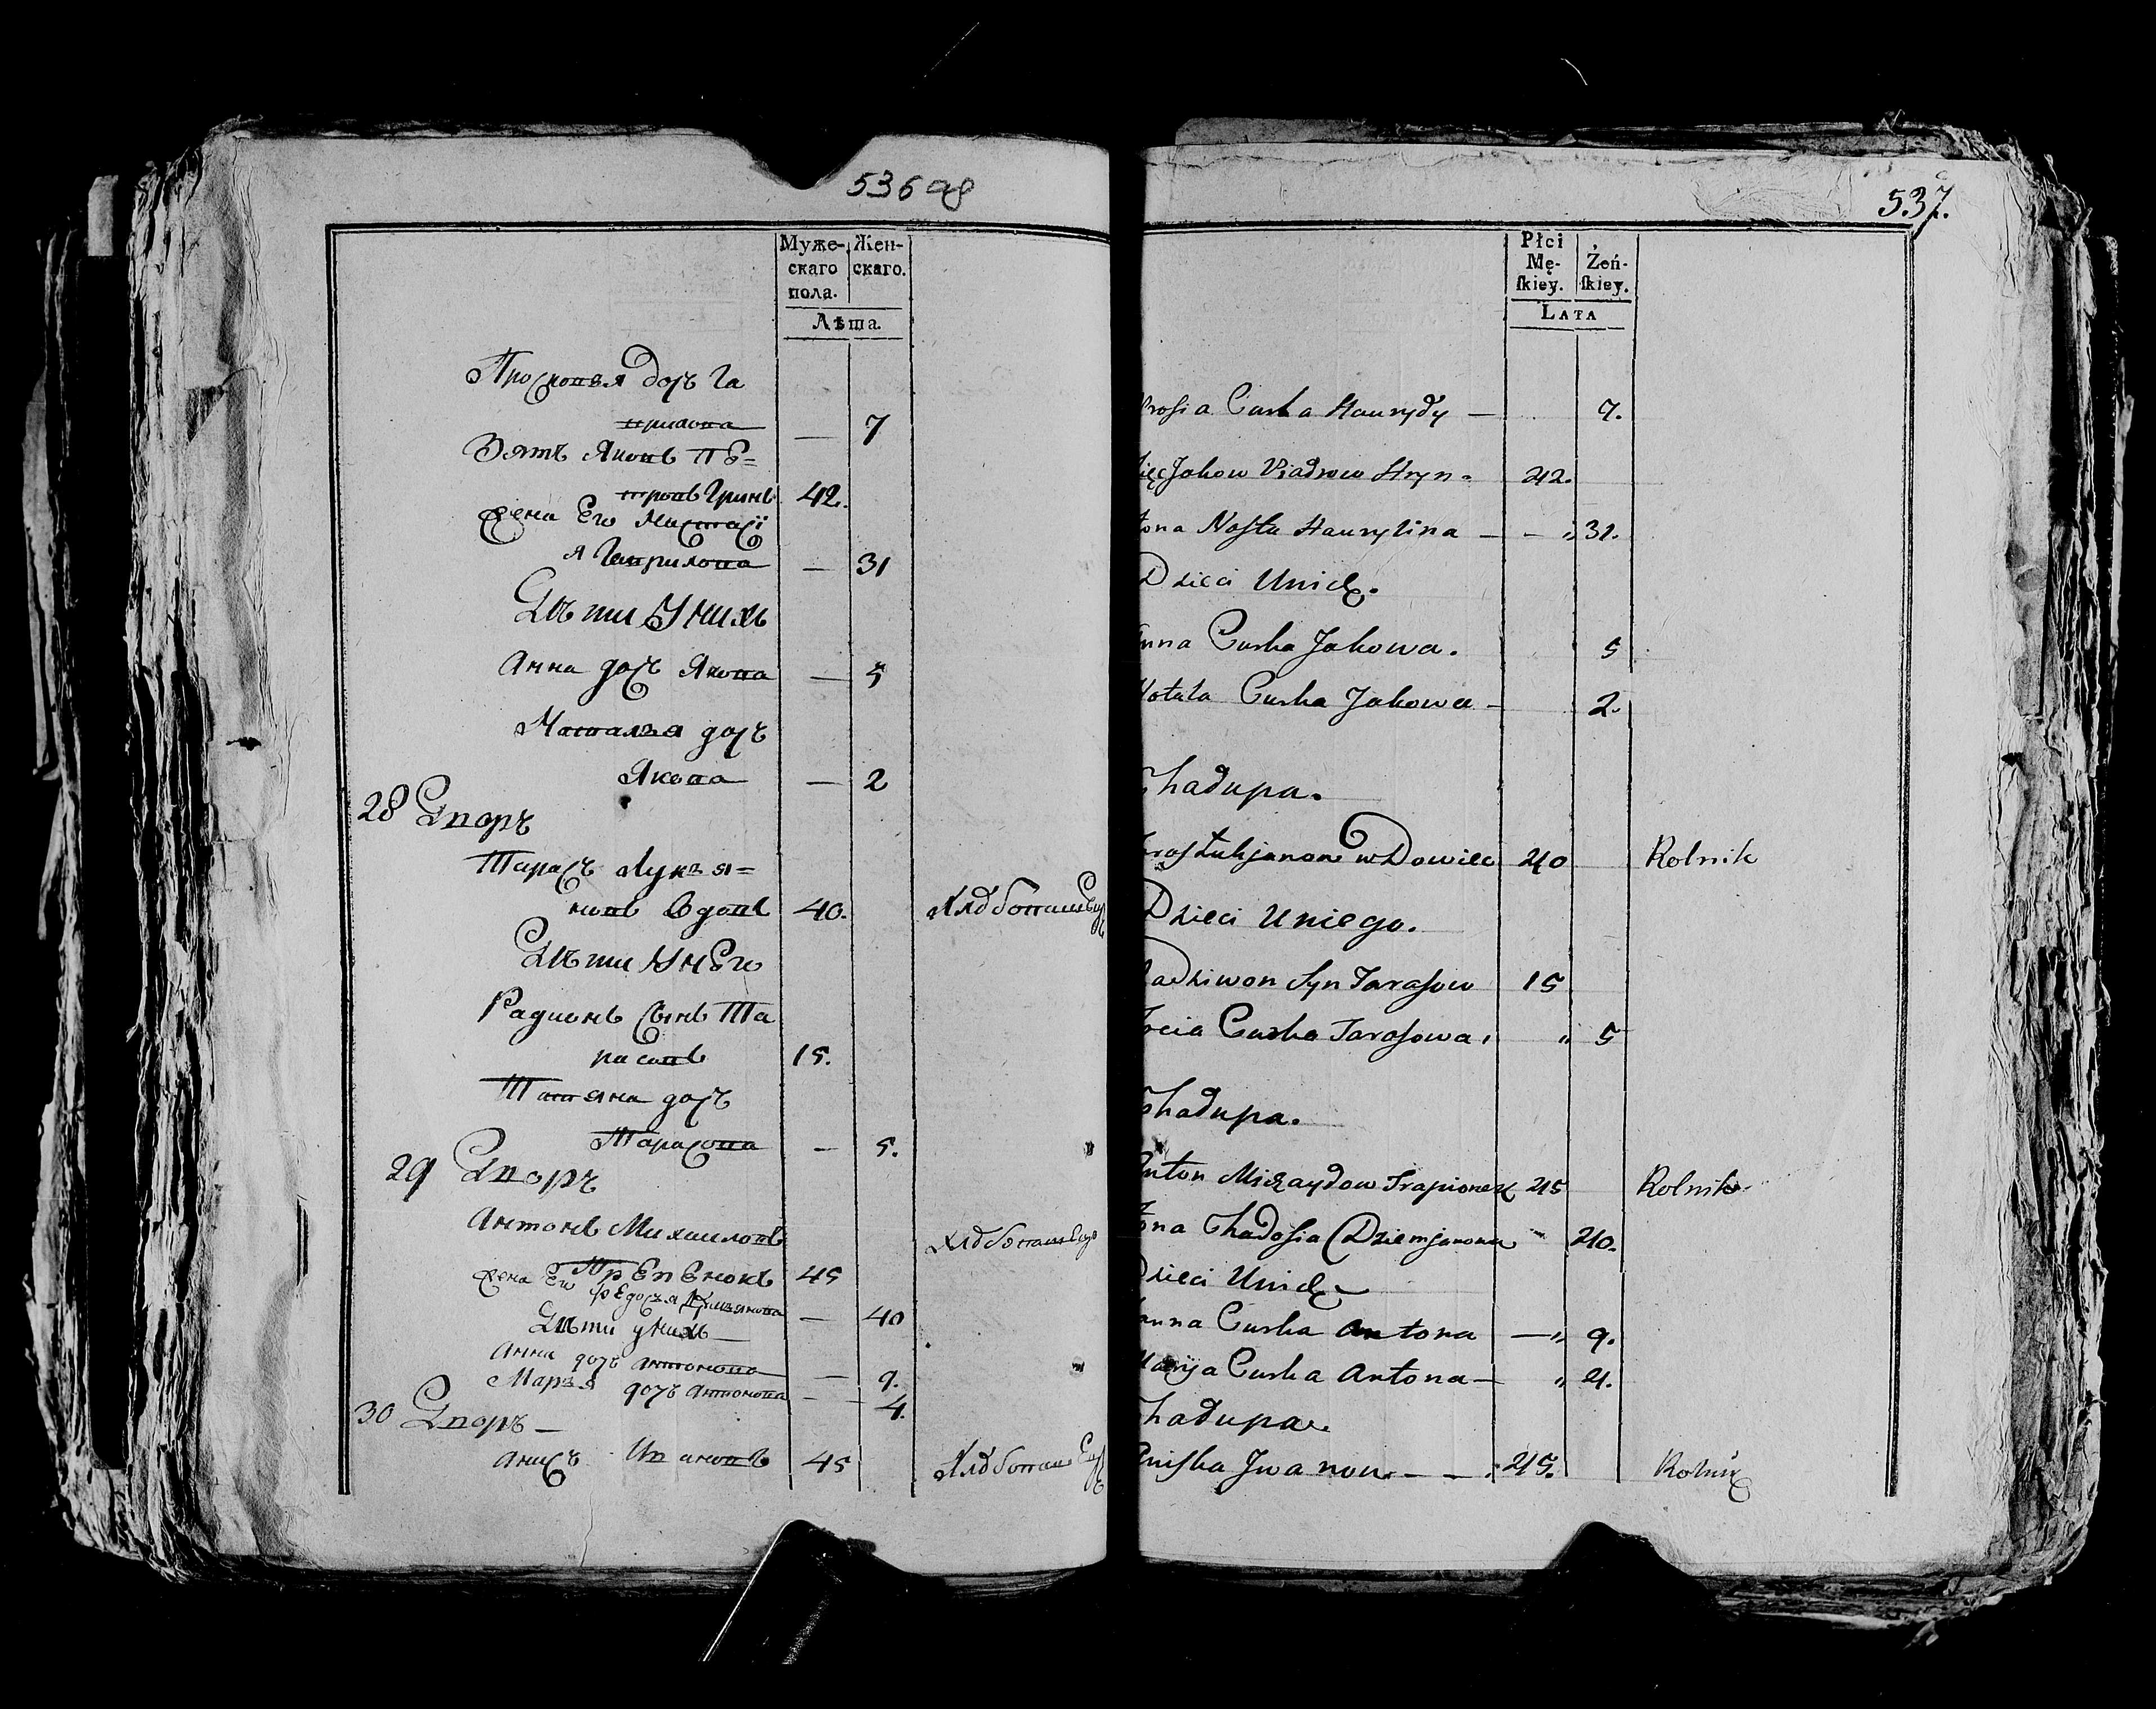 536 об
Муже-
скаго
пола.
Жен-
скаго.
Лѣта.
Просковья дочъ Га
врилова — 7
Зять Яковъ Пе=
тровъ Гринь 42.
жена Его Настасі
я Гаврилова — 31
Дѣти У нихъ
Анна дочъ Якова — 5
Наталья дочъ
Якова — 2
28 Дворъ
Тарасъ Лукья=
новъ вдовъ 40. Хлѣбопашецъ
Дѣти У него
Радионъ сынъ Та
расовъ 15.
Татьяна дочъ
Тарасова — 5.
29 Дворъ
Антонъ Михаиловъ Хлѣбопашецъ
Трепенокъ 45
жена Его Федосья Демьянова — 40
Дѣти у нихъ —
Анна дочъ Антонова — 9.
Марья дочъ Антонова — 4.
30 Дворъ —
Анисъ Ивановъ 45 Хлѣбопашецъ
537.
Płci
Mę-
ſkiey.
Żeń-
ſkiey.
LATA
Prosia Curka Hauryły — 7.
Zięć Jakow Piadrow Hryn= 42.
Żona Nasta Hauryłina — — „ 31.
Dzieci Unich.
Anna Curka Jakowa. 5
Natala Curka Jakowa — 2.
Chałupa.
Taras Łukjanow wdowiec 40 Rolnik
Dzieci Uniego.
Radziwon Syn Tarasow 15
Curka Tarasowa, „ 5
Chałupa.
Anton Michayłow Trapionek 45 Rolnik
Żona Chadosia Dziemjanowa — 40.
Dzieci Unich
Hanna Curka Antona — „ 9.
Maryja Curka Antona — „ 4.
Chałupa.
Aniska Iwanow — — . 45. Rolnik